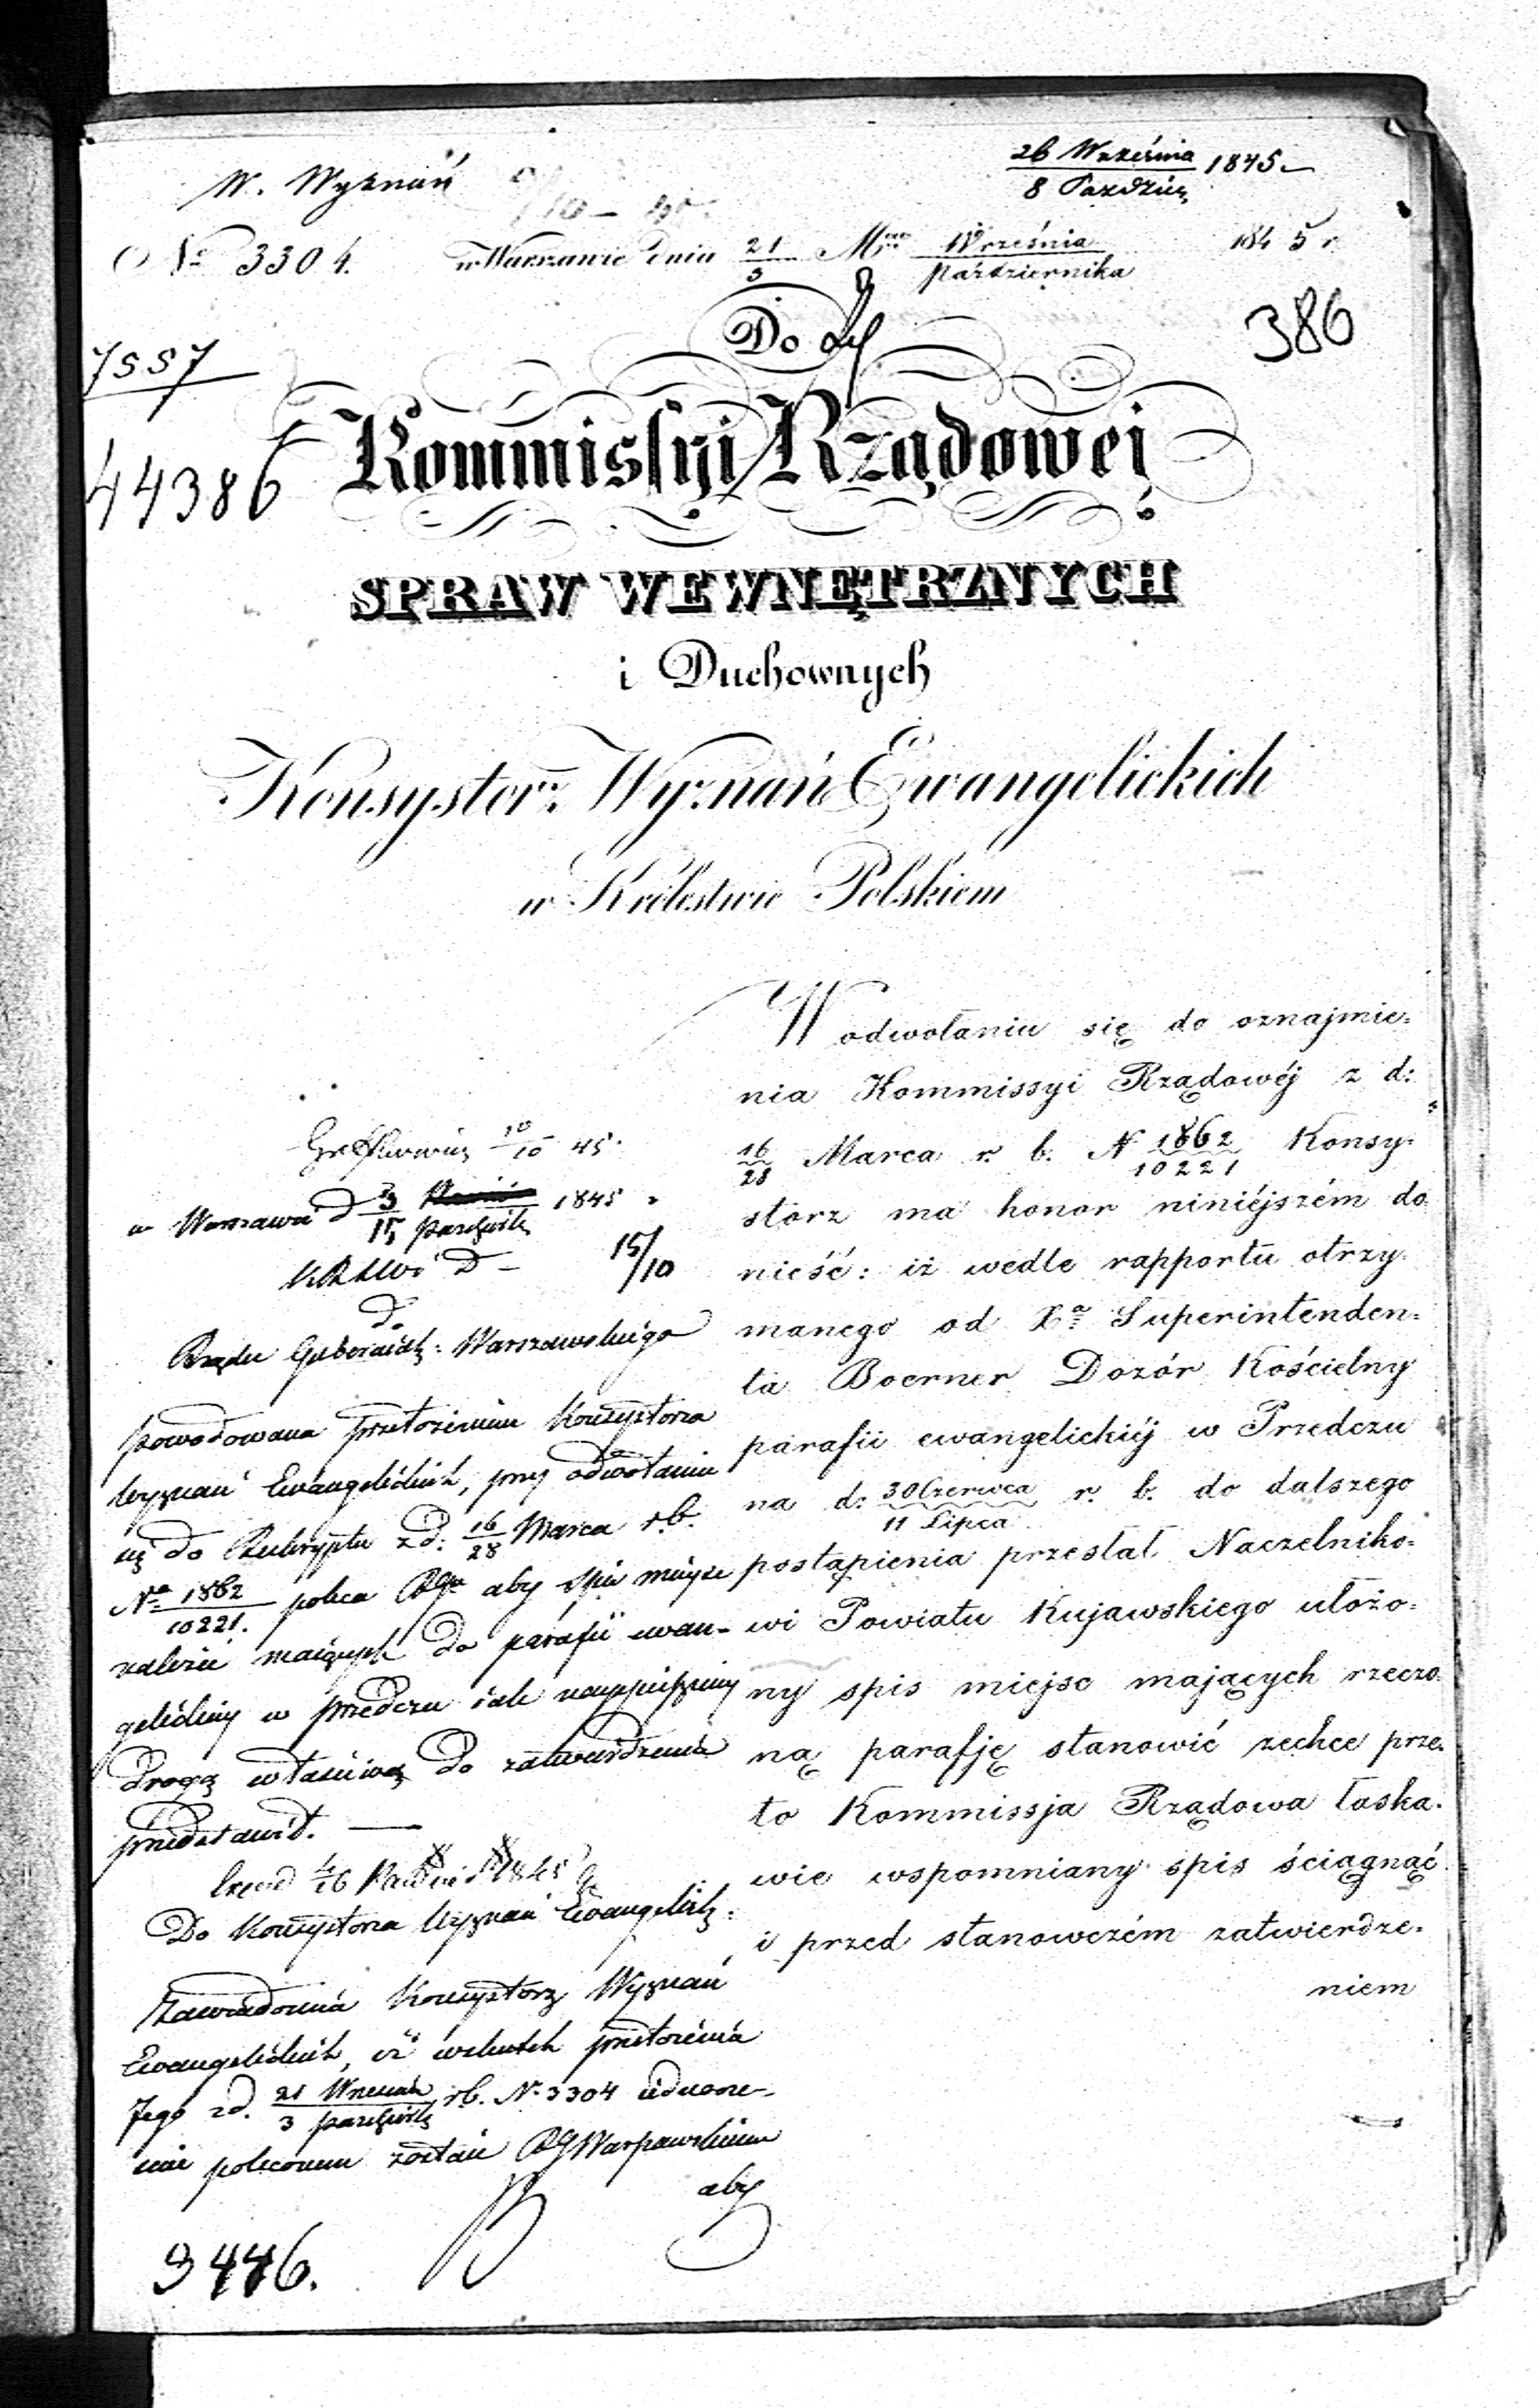 W. Wyznań
26 Września 1845
8 Paździer
№ 3304. w Warszawie dnia 21/3 Mca Września/Października 1845 r
Do
386
7557
44386
Kommissyi Rządowej
SPRAW WEWNĘTRZNYCH
i Duchownych
Konsystorz Wyznań Ewangelickich
w Królestwie Polskiem
W odwołaniu się do oznajmie=
nia Kommissyi Rządowéj z d:
16/28 Marca r. b. N 1862/10221 Konsy=
storz ma honor niniéjszém do
nieść: iż wedle rapportu otrzy=
manego od Xa Superintenden=
ta Boerner Dozór Kościelny
parafii ewangelickiéj w Przedczu
na d: 30 Czerwca/11 Lipca r. b. do dalszego
postąpienia przesłał Naczelniko=
wi Powiatu Kujawskiego ułożo=
ny spis miejsc mających rzeczo=
ną parafję stanowić zechce prze=
to Kommissja Rządowa łaska=
wie wspomniany spis ściągnąć
i przed stanowczém zatwierdze=
niem
10/10 45
w Warszawie d 3/15 Paździer 1845
15/10
do
Rządu Gubernial: Warszawskiego
Powodowana przełożeniem Konsystorza
Wyznań Ewangelickich, przy odwołaniu
się do Reskryptu z d: 16/28 Marca r.b.
Na 1862/10221. poleca RGu aby spis miejsc
należeć mających do parafii ewan-
gelickiej w Przedczu jak najspieszniej
drogą właściwą do zatwierdzenia
przedstawił.
Do Konsystorza Wyznań Ewangelick:
Zawiadomia Konsystorz Wyznań
Ewangelickich, iż wskutek przełożenia
Jego z d. 21 Wrześnie/3 Paździer r.b. N. 3304 jednocze-
śnie poleconem zostało RG Warszawskiemu
aby
9446.